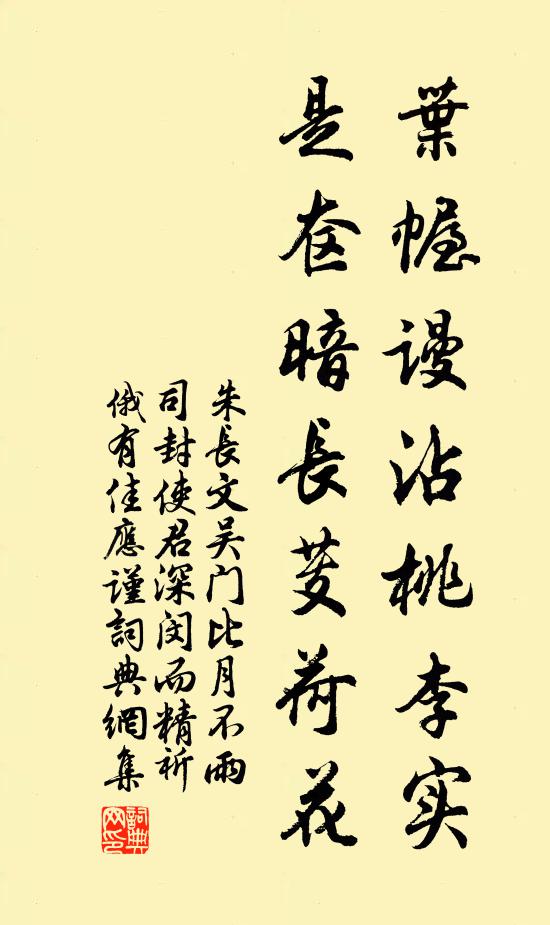 葉幄謾沾桃李实
是奁暗長芰荷花
朱長文吴门比月不雨
司封使君深闵而精祈
俄有佳應谨詞典網集
詞典網印